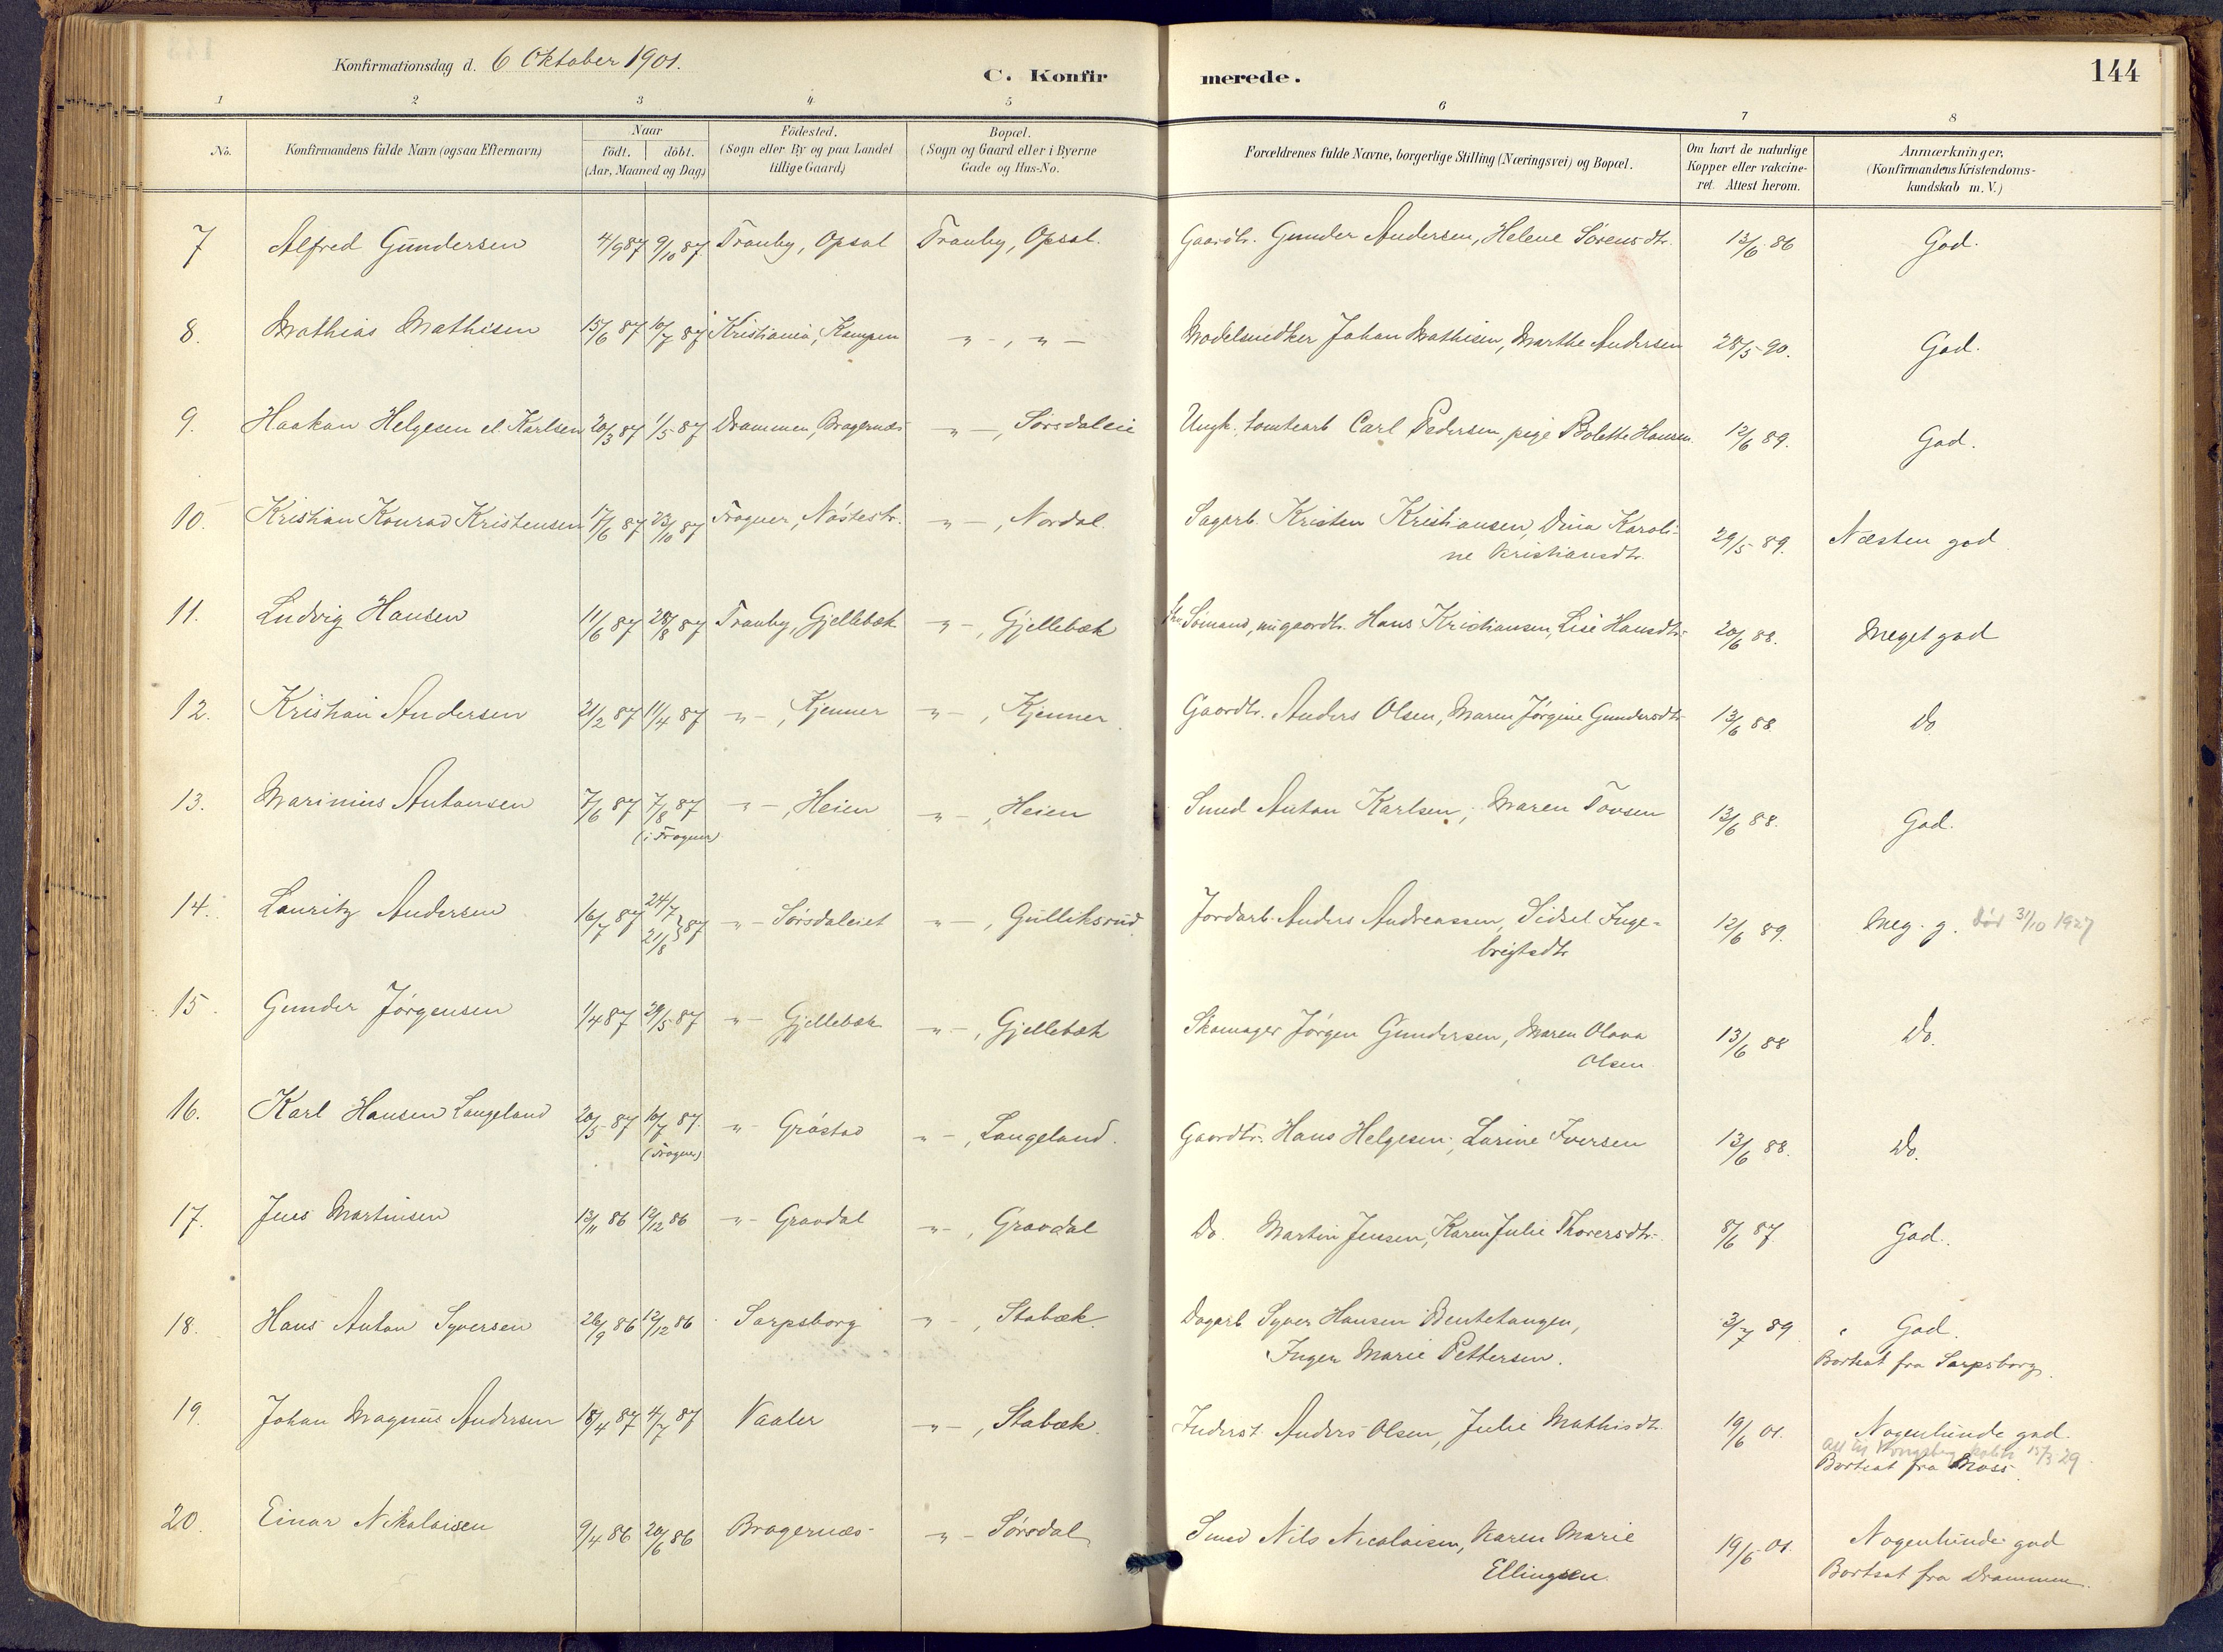 Konfirmationsdag d. 6 Oktober 1901.
C. Konfirmerede.
144
1 2 3 4 5 6 7 8
No.
Konfirmandens fulde Navn (ogsaa Efternavn)
Naar
født. døbt.
(Aar, Maaned og Dag)
Födested.
(Sogn eller By og paa Landet
tillige Gaard)
Bopæl.
(Sogn og Gaard eller i Byerne
Gade og Hus-No.
Forældrenes fulde Navne, borgerlige Stilling (Næringsvei) og Bopæl.
Om havt de naturlige
Kopper eller vakcine-
ret. Attest herom.
Anmærkninger.
(Konfirmandens Kristendoms-
kundskab m. V.)
7 Alfred Gundersen 4/9 87 9/10 87 Tranby, Opsal Tranby, Opsal. Gaardbr. Gunder Andersen, Helene Sørensdtr. 13/6 86 God.
8. Mathias Mathisen 15/6 87 10/7 87 Kristiania, Kampen -"-, -"- Modelsnedker Johan Mathisen, Marthe Andersen 28/5 90. God.
9. Haakon Helgesen el. Karlsen 20/3 87 1/5 87 Drammen, Bragernæs -"-, Sørsdaleie Ungk. tomtearb Carl Pedersen, pige Bolette Hansen. 12/6 89. God.
10. Kristian Konrad Kristensen 17/6 87 23/10 87 Frogner, Nøstestr. -"-, Nordal. Sagarb. Kristen Kristiansen, Dina Karoli-
ne Kristiansdtr. 29/5 89. Næsten god
11. Ludvig Hansen 11/6 87 28/8 87 Tranby, Gjellebæk -"-, Gjellebæk Sømand, nu gaardbr. Hans Kristiansen, Lise Hansdtr. 20/6 88. Meget god
12. Kristian Andersen 21/2 87 11/4 87 -"-, Kjenner -"-, Kjenner. Gaardbr. Anders Olsen, Maren Jørgine Gundersdtr 13/6 88 Do
13. Marinius Antonsen 7/6 87 7/8 87 -"-, Heien -"-, Heien Smed Anton Karlsen, Maren Tovsen 13/6 88. God.
(i Frogner)
14. Lauritz Andersen 16/7 87 24/7 21/8 } 87 -"- Sørsdaleiet -"-, Gulliksrud Jordarb. Anders Andreassen, Sidsel Inge-
brigtsdtr 12/6 89. Meg. g. død 31/10 1927
15. Gunder Jørgensen 1/4 87 29/5 87 -"- Gjellebæk -"-, Gjellebæk Skomager Jørgen Gundersen, Maren Olava
Olsen. 13/6 88 Do.
16. Karl Hansen Langeland 20/5 87 10/7 87. -"- Grøstad -"-, Langeland. Gaardbr. Hans Helgesen, Larine Iversen 13/6 88. Do.
(Frogner)
17. Jens Martinsen 13/11 86 12/12 86 -"- Gravdal -"-, Gravdal Do. Martin Jensen, Karen Julie Thorersdtr. 8/6 87 God.
18. Hans Anton Syversen 26/9 86 12/12 86 Sarpsborg -"-, Stabæk. Dagarb Syver Hansen Bentehaugen,
Inger Marie Pettersen. 3/7 89 God.
Bortsat fra Sarpsborg.
19. Johan Magnus Andersen 18/4 87 4/7 87 Vaaler -"-, Stabæk. Inderst. Anders Olsen, Julie Mathisdtr. 19/6 01. Nogenlunde god.
Att til Kongsberg 15/3 29.
Bortsat fra Moss.
20. Einar Nikolaisen 9/4 86 20/6 86 Bragernæs -"- Sørsdal Smed Nils Nicolaisen, Karen Marie
Ellingsen. 19/6 01. Nogenlunde god
Bortsat fra Drammen.